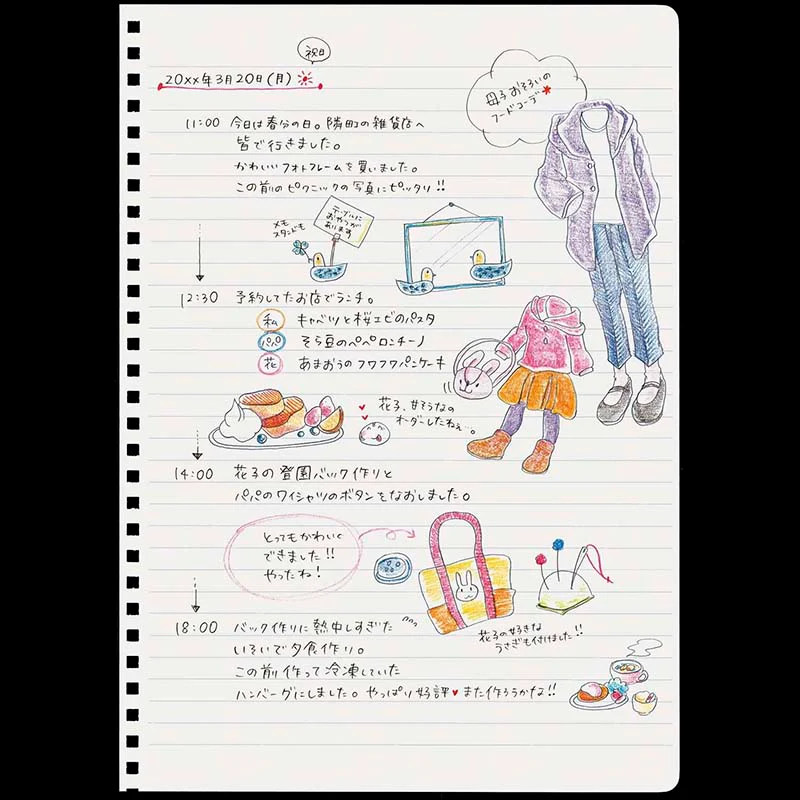 祝日
20xx年3月20日(月)
母子おそろいの
フードコーデ*
11:00 今日は春分の日。隣町の雑貨店へ
皆で行きました。
かわいいフォトフレームを買いました。
この前のピクニックの写真にピッタリ!!
メモ
スタンドも
テーブルに
おやつが
あります
12:30 予約してたお店でランチ。
私 キャベツと桜エビのパスタ
パパ そら豆のペペロンチーノ
花 あまおうのフワフワパンケーキ
♥ 花子、甘そうなの
オーダーしたねぇ…。
14:00 花子の登園バック作りと
パパのワイシャツのボタンをなおしました。
とってもかわいく
できました!!
やったね!
花子の好きな
うさぎも付けました!!
18:00 バック作りに熱中しすぎた
いそいで夕食作り。
この前作って冷凍していた
ハンバーグにしました。やっぱり好評♥また作ろうかな!!